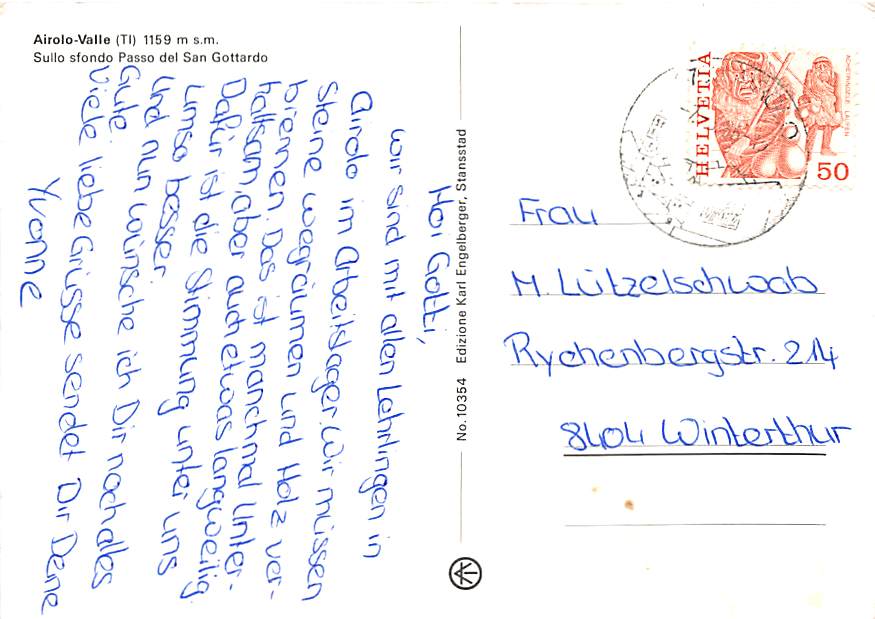 Airolo-Valle (TI) 1159 m s.m.
Sullo sfondo Passo del San Gottardo
Hoi Gotti,
wir sind mit allen Lehrlingen in
Airolo im Arbeitslager. Wir müssen
Steine wegräumen und Holz ver-
brennen. Das ist manchmal unter-
haltsam, aber auch etwas langweilig.
Dafür ist die Stimmung unter uns
umso besser.
Und nun wünsche ich Dir noch alles
Gute.
Viele liebe Grüsse sendet Dir Deine
Yvonne
No. 10354 Edizione Karl Engelberger, Stansstad
HELVETIA
50
ACHETRINGELE LAUPEN
Frau
M. Lützelschwab
Rychenbergstr. 214
8404 Winterthur